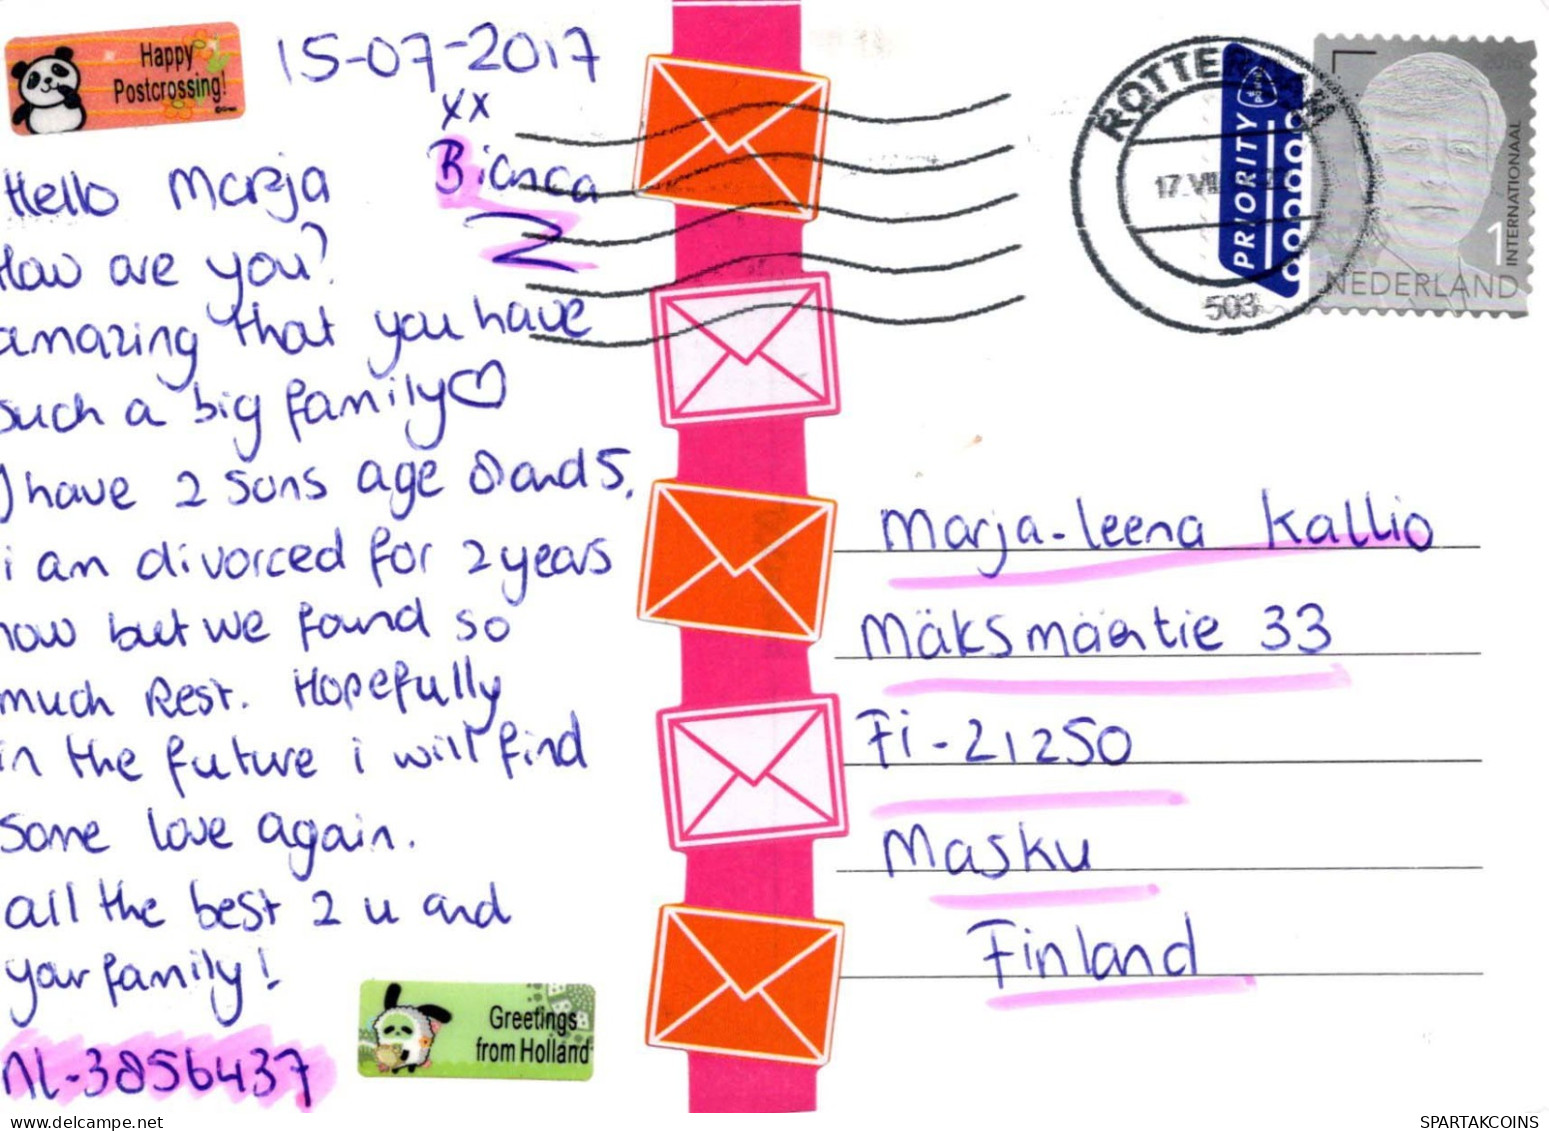 Happy
Postcrossing!
15-07-2017
xx
Bianca
Hello Marja
How are you?
amazing that you have
such a big family♡
I have 2 sons age 8 and 5.
i am divorced for 2 years
now but we found so
much Rest. Hopefully
in the future i will find
some love again.
all the best 2 u and
your family!
NL-3856437
Greetings
from Holland
ROTTERDAM
17.VII
503
PRIORITY
2016
1
INTERNATIONAAL
NEDERLAND
Marja-leena Kallio
Mäksmäentie 33
Fi-21250
Masku
Finland
SPARTAKCOINS